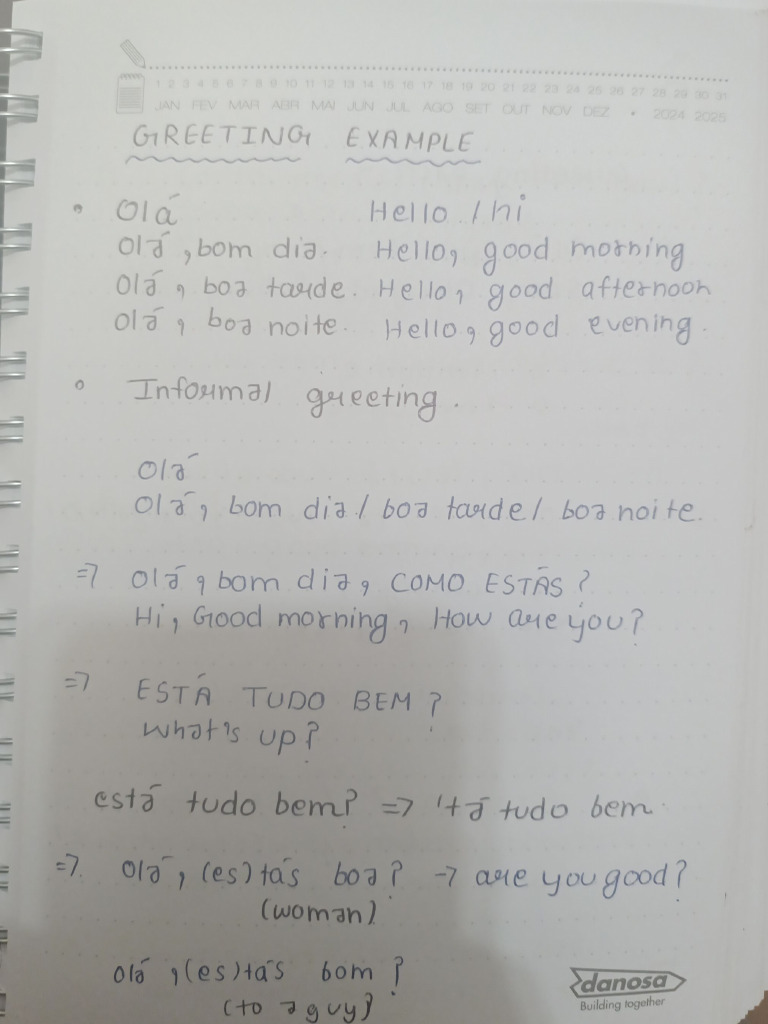 1 2 3 4 5 6 7 8 9 10 11 12 13 14 15 16 17 18 19 20 21 22 23 24 25 26 27 28 29 30 31
JAN FEV MAR ABR MAI JUN JUL AGO SET OUT NOV DEZ • 2024 2025
GREETING EXAMPLE
• Olá Hello / hi
Olá, bom dia. Hello, good morning
Olá, boa tarde. Hello, good afternoon
Olá, boa noite. Hello, good evening.
• Informal greeting.
Olá
Olá, bom dia / boa tarde / boa noite.
=> Olá, bom dia, COMO ESTÁS?
Hi, Good morning, How are you?
=> ESTÁ TUDO BEM?
What's up?
está tudo bem? => 'tá tudo bem
=> Olá, (es)tás boa? -> are you good?
(woman)
olá, (es)tás bom?
(to a guy)
danosa
Building together